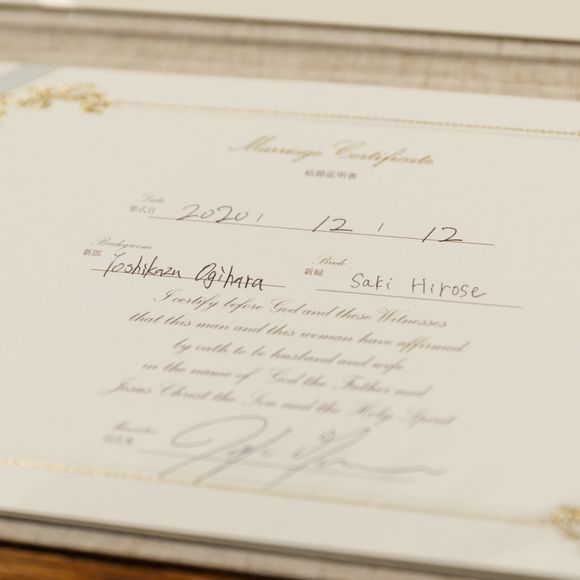 Marriage Certificate
結婚証明書
Date
挙式日 2020, 12, 12
Bridegroom
新郎 Yoshikazu Ogihara
Bride
新婦 Saki Hirose
I certify before God and these Witnesses
that this man and this woman have affirmed
by oath to be husband and wife
in the name of God the Father and
Jesus Christ the Son and the Holy Spirit
Minister
司式者